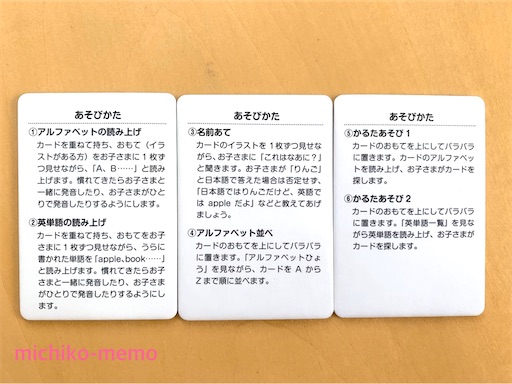 あそびかた
①アルファベットの読み上げ
カードを重ねて持ち、おもて（イラ
ストがある方）をお子さまに1枚ず
つ見せながら、「A、B……」と読み
上げます。慣れてきたらお子さまと
一緒に発音したり、お子さまがひと
りで発音したりするようにします。
②英単語の読み上げ
カードを重ねて持ち、おもてをお子
さまに1枚ずつ見せながら、うらに
書かれた単語を「apple、book……」
と読み上げます。慣れてきたらお子
さまと一緒に発音したり、お子さま
がひとりで発音したりするようにし
ます。
あそびかた
③名前あて
カードのイラストを1枚ずつ見せな
がら、お子さまに「これはなあに？」
と聞きます。お子さまが「りんご」
と日本語で答えた場合は否定せず、
「日本語ではりんごだけど、英語で
は apple だよ」などと教えてあげ
ましょう。
④アルファベット並べ
カードのおもてを上にしてバラバラ
に置きます。「アルファベットひょ
う」を見ながら、カードを A から
Z まで順に並べます。
あそびかた
⑤かるたあそび 1
カードのおもてを上にしてバラバラ
に置きます。カードのアルファベッ
トを読み上げ、お子さまがカードを
探します。
⑥かるたあそび 2
カードのおもてを上にしてバラバラ
に置きます。「英単語一覧」を見な
がら英単語を読み上げ、お子さまが
カードを探します。
michiko-memo